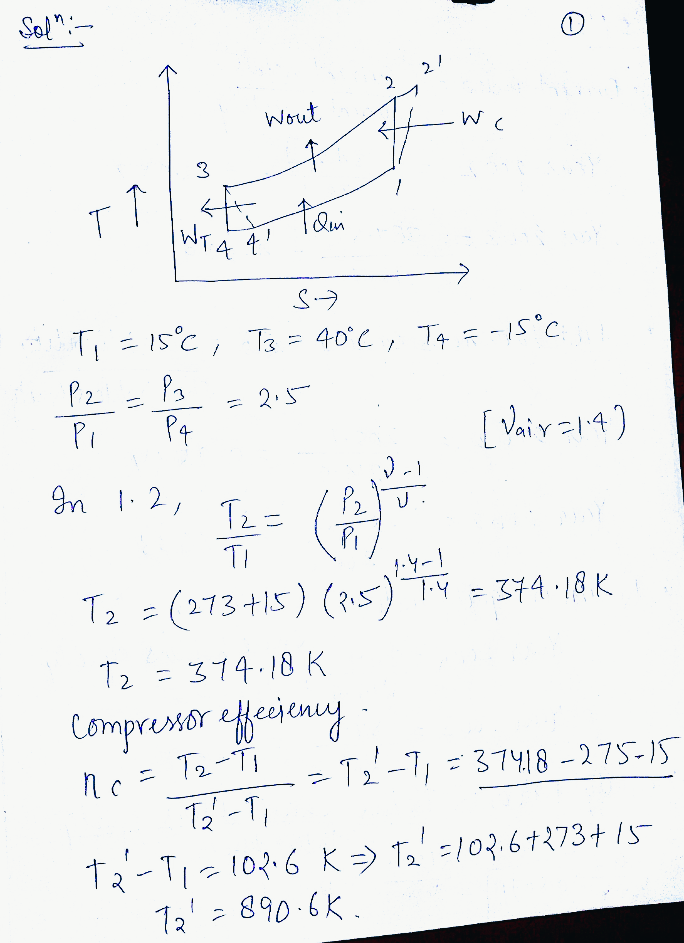 Solⁿ:-
①
2 2'
Wout
W c
3
1
T ↑
WT 4 4' Qin
S→
T₁ = 15°C, T₃ = 40°C, T₄ = -15°C
P₂/P₁ = P₃/P₄ = 2.5
[γair = 1.4)
In 1.2, T₂/T₁ = (P₂/P₁)^((γ-1)/γ)
T₂ = (273+15) (2.5)^((1.4-1)/1.4) = 374.18 K
T₂ = 374.18 K
Compressor effeciency.
ηc = (T₂-T₁)/(T₂'-T₁) = T₂'-T₁ = 374.18 - 275-15
T₂'-T₁ = 102.6 K ⇒ T₂' = 102.6+273+15
T₂' = 890.6K.